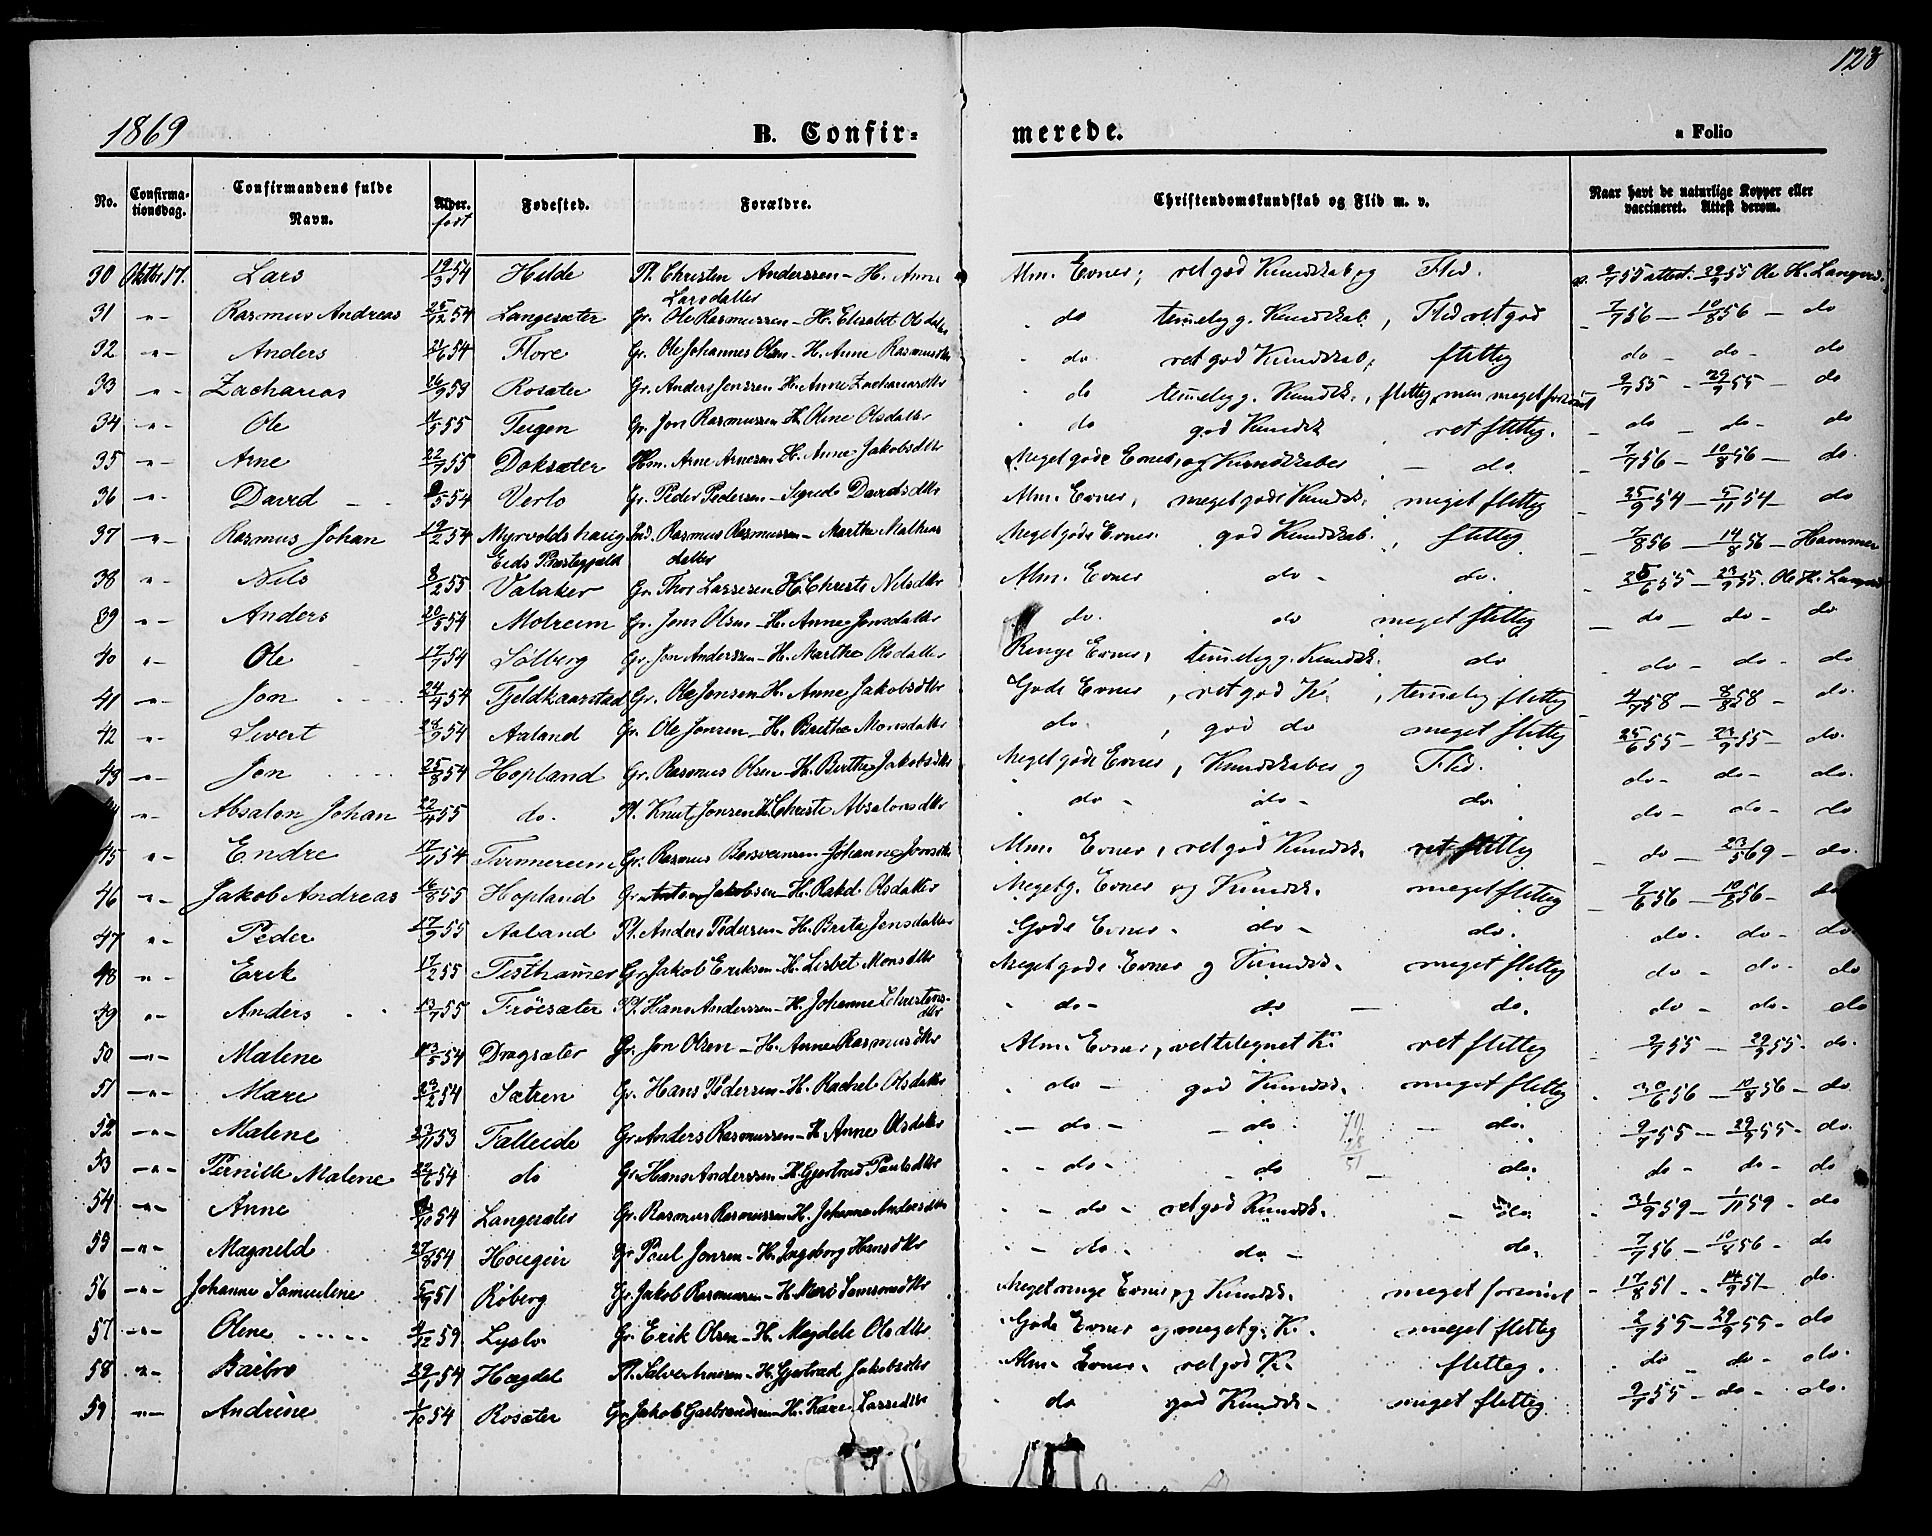 123
1869 B. Confir- merede. a Folio
No. Confirma-tionsdag. Confirmandens fulde Navn. Alder. født Fødested. Forældre. Christendomskundskab og Flid m. v. Naar havt de naturlige Kopper eller vaccineret. Attest derom.
30 Oktbr 17. Lars 19/3 54 Hilde Pl. Christen Anderssen - H. Anne Larsdatter Alm. Evner, ret god Kundskab og Flid. 9/7 55 attest. 29/9 55 Ole H.
31 -"- Rasmus Andreas 25/12 54 Langesæter Gr. Ole Rasmussen - H. Elisabet Olsdatter do temelig g. Kundskab, Flid ret god - 7/7 56 - 10/8 56 - do
32 -"- Anders 21/6 54 Flore Gr. Ole Johannes Olsen - H. Anne Rasmusdtr do ret god Kundskab, flittig do - do - do
33 -"- Zacharias 26/9 59 Rosæter Gr. Anders Jenssen H. Anne Zachariasdtr do temelig g. Kundsk., flittig, men meget forsømt 9/7 55 - 29/9 55 - do
34 -"- Ole 55 Teigen Gr. Jon Rasmussen H. Oline Olsdatter do god Kundsk ret flittig. - do - do - do
35 -"- Arne 22/7 55 Doksæter Hm. Arne Arnesen H. Anne Jakobsdtr Meget gode Evner, og Kundskaber - do - 7/7 56 - 10/8 56 - do.
36 -"- David 54 Verlo Gr. Peder Pedersen - Sigrid Davidsdtr Alm. Evner, meget gode Kundsk. meget flittig - 25/9 54 - 54 - do
37 -"- Rasmus Johan 19/2 54 Myrvoldshaug Eids Præstegjeld Ind. Rasmus Rasmussen - Marthe Mathias datter Meget gode Evner. god Kundskab, flittig - 7/8 56 - 14/8 56 - Hammer
38 -"- Nils 8/2 55 Valaker Gr. Thor Lassesen H. Christi Nilsdtr Alm. Evner do - do. - 25/6 55 - 23/9 55. Ole H.
39 -"- Anders 20/5 54 Molreim Gr. Jens Olsen - H. Anne Jonsdatter do. do meget flittig - do - do - do
40 -"- Ole 17/7 54 Sölberg Gr. Jon Anderssen - H. Marthe Olsdatter Ringe Evner, temelig g. Kundsk. do do - do - do
41 -"- Jon 24/4 54 Fjeldkaarstad Gr. Ole Jonsen H. Anne Jakobsdtr Gode Evner, ret god K., temelig flittig - 4/7 58 - 8/8 58 - do.
42 -"- Sivert 28/9 54 Aaland Gr. Ole Jonsen - H. Brithe Monsdatter do. , god do meget flittig 25/6 55 - 23/9 55 - do.
43 -"- Jon 25/8 54 Hopland Gr. Rasmus Olsen - H. Berthe Jakobsdtr Meget gode Evner, Kundskaber og Flid. do - do - do.
-"- Absalon Johan 22/4 55 do. Pl. Knut Jonsen H. Christi Absalonsdtr do - do - do do - do - do
45 -"- Endre 17/11 54 Tvinnereim Gr. Rasmus - Johanne Jonsdtr Alm. Evner, ret god Kundsk. ret flittig - do - 23/5 69 - do.
46 -"- Jakob Andreas 16/8 55 Hopland Gr. Anton Jakobsen - H. Rakel Olsdatter Meget g. Evner og Kundsk. meget flittig - 7/6 56 - 10/8 56 - do
47 -"- Peder 17/9 55 Aaland Pl. Anders Pedersen - H. Brite Jensdatter Gode Evner - do - do. do - do - do
48 -"- Erik 17/2 55 Festhamer Gr. Jakob Eriksen - H. Lisbet Monsdtr Meget gode Evner og Kundsk. meget flittig do - do - do
49 -"- Anders 13/7 55 Fröesæter Pl. Hans Anderssen - H. Johanne Christensdtr do - do - do. do - do - do
50 -"- Malene 54 Dragsæter Gr. Jon Olsen - H. Anne Rasmusdtr Alm. Evner, vel tilegnet K. ret flittig - 9/7 55 - 29/9 55 - do.
51 -"- Mari 23/2 54 Sætren Gr. Hans Pedersen - H. Rachel Olsdatter do - god Kundsk. meget flittig - 30/6 56 - 10/8 56 - do
52 -"- Malene 53 Talleide Gr. Anders Rasmussen - H. Anne Olsdatter - do - - do - do. 9/7 55 - 29/9 55 - do.
53 -"- Pernille Malene 22/6 54 do Gr. Hans Anderssen H. Gjertrud Paulsdtr - do - do - do. do - do - do
54 -"- Anne 54 Langesæter Gr. Rasmus Rasmussen H. Johanne Andersdtr - do - ret god Kundsk. - do. 59 - 1/11 59 - do
55 -"- Magnild 27/8 54 Hougen Gr. Poul Jonsen - H. Ingeborg Hansdtr - do - do - do. 7/7 56 - 10/8 56 - do
56 -"- Johanne Samueline 51 Röberg Gr. Jakob Rasmussen - H. Mari Meget ringe Evner og Kundsk. meget forsömt - 17/8 51 - 14/9 51 - do.
57 -"- Oline 4/12 59. Lyslo Gr. Erik Olsen - H. Magdele Olsdtr Gode Evner og meget g. K. meget flittig 2/7 55 - 29/9 55 - do.
58 -"- Barbro 29/7 54 Hægdal Pl. - H. Gjertrud Jakobsdtr Alm. Evner. ret god K. flittig. do - do - do.
59 -"- Andrine 1/10 54 Rosæter Gr. Jakob Gerbrandsen - H. Kari Lassedtr do god Kundsk - meget flittig. 9/7 55 - do - do.